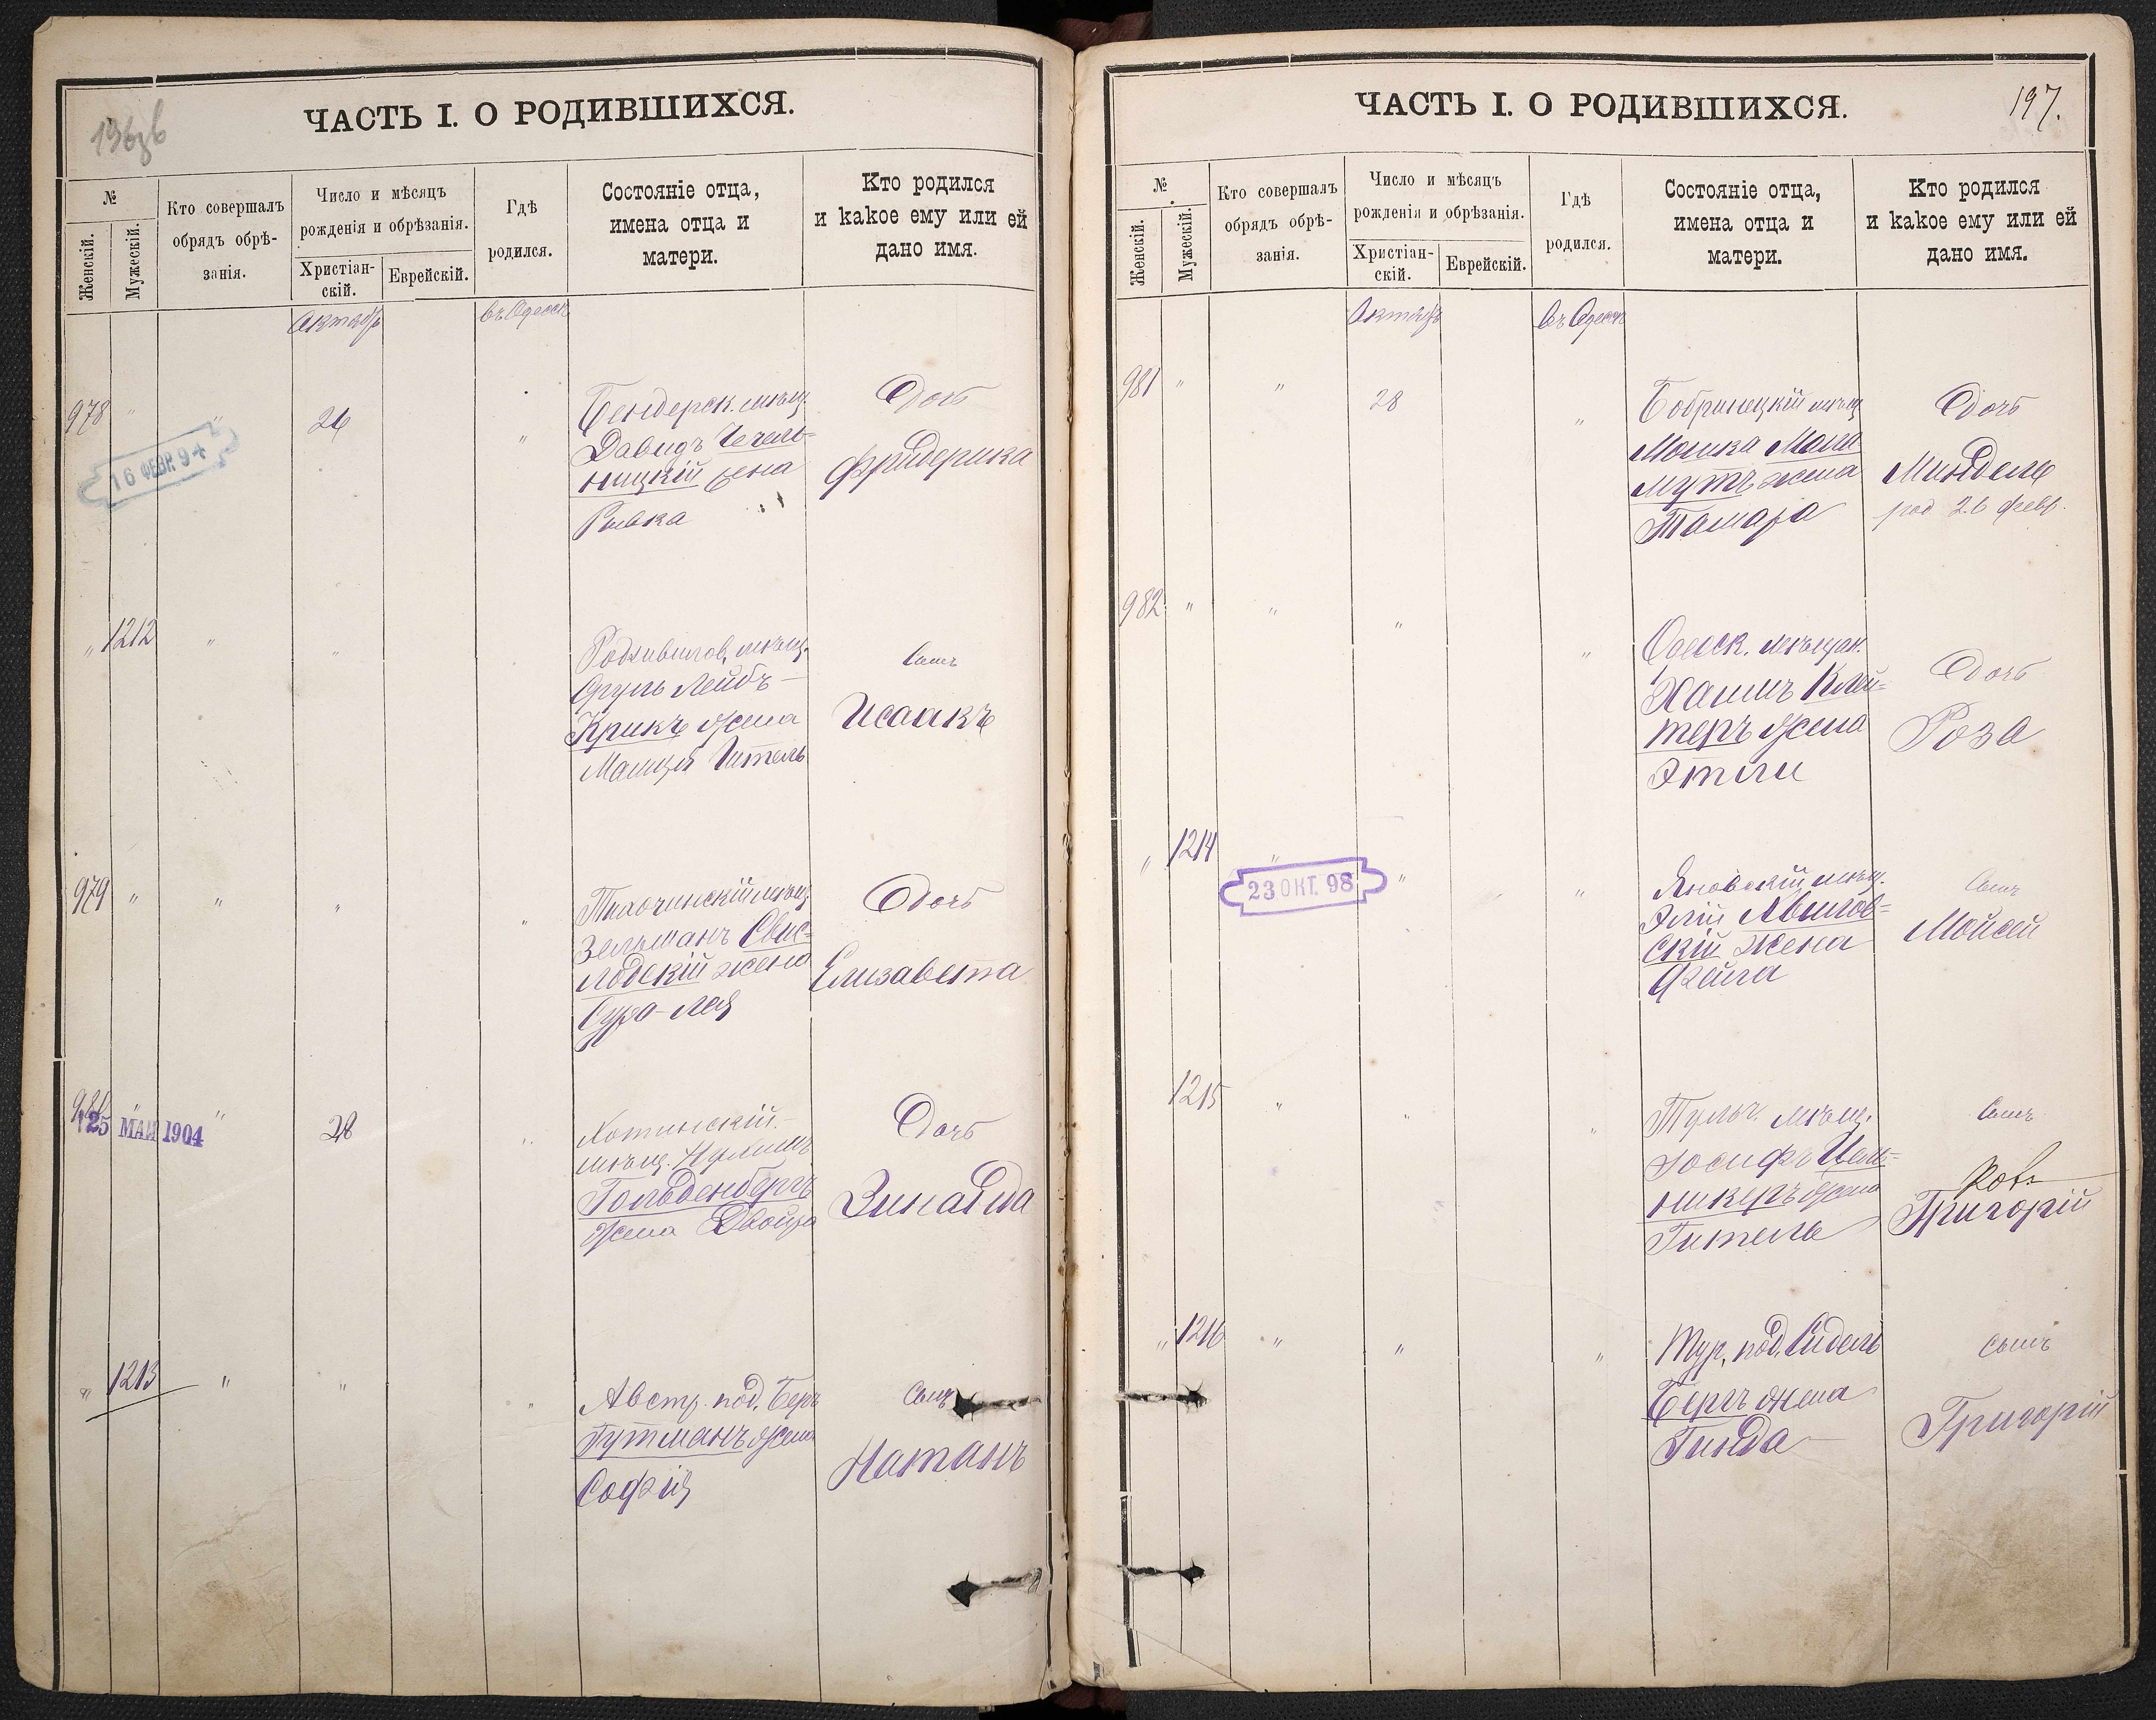 ЧАСТЬ I. О РОДИВШИХСЯ.
№
Женскій.
Мужескій.
Кто совершалъ
обрядъ обрѣ-
занія.
Число и мѣсяцъ
рожденія и обрѣзанія.
Христіан-
скій.
Еврейскій.
Гдѣ
родился.
Состояніе отца,
имена отца и
матери.
Кто родился
и какое ему или ей
дано имя.
Октябрь
въ Одессѣ
978 " " 26 "
16 ФЕВР. 94
Бендерск. мѣщ.
Давидъ Чечель-
ницкій жена
Ривка
Дочь
Фридерика
" 1212 " "
Радзивилов. мѣщ.
Сруль Лейбъ
Крикъ жена
Гитель
Сынъ
Исаакъ
979 " " " "
мѣщ.
Зельманъ Свис-
лодскій жена
Сура-Лея
Дочь
Елизавета
980 " " 28 "
25 МАЙ 1904
Хотинскій
мѣщ.
Гольденбергъ
жена Двойра
Дочь
Зинаида
" 1213 " " "
Австр. под. Беръ
Гутманъ жена
Софія
Сынъ
Натанъ
ЧАСТЬ I. О РОДИВШИХСЯ.
197.
№
Женскій.
Мужескій.
Кто совершалъ
обрядъ обрѣ-
занія.
Число и мѣсяцъ
рожденія и обрѣзанія.
Христіан-
скій.
Еврейскій.
Гдѣ
родился.
Состояніе отца,
имена отца и
матери.
Кто родился
и какое ему или ей
дано имя.
Октябрь
въ Одессѣ
981 " " 28 "
Бобринецкій мѣщ.
Мошка Мала
мутъ жена
Тамара
Дочь
Миндель
род. 26 февр.
982 " " " "
Одесск. мѣщан.
Хаимъ Клей-
теръ жена
Этли
Дочь
Роза
" 1214 " " "
23 ОКТ. 98
Яновскій мѣщ.
Элій Авилов-
скій жена
Фейга
Сынъ
Мойсей
1215 " " "
Тульч. мѣщ.
Іосифъ Цель-
никеръ жена
Гитель
Сынъ
Григорій
" 1216 " " "
Тур. под. Сидель
Бергъ жена
Гинда
Сынъ
Григорій